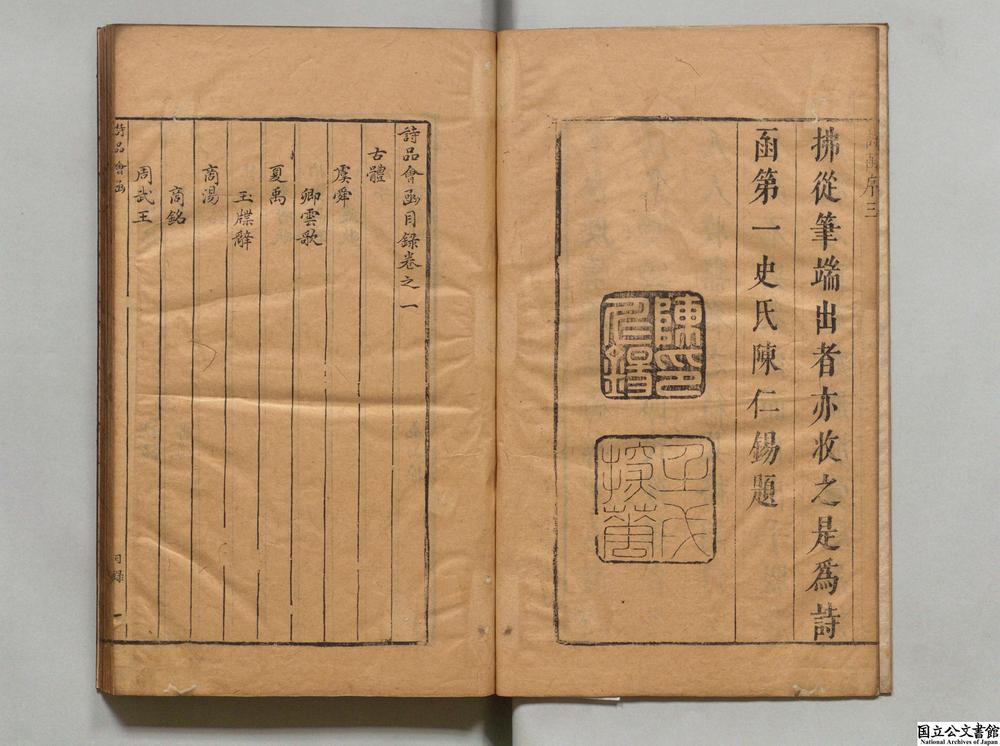 拂從筆端出者亦收之是爲詩
函第一史氏陳仁錫題
陳印仁錫
壬戌探花
詩品會函目錄卷之一
古體
虞舜
卿雲歌
夏禹
玉牒辭
商湯
商銘
周武王
詩品會函
目錄
一
国立公文書館
National Archives of Japan